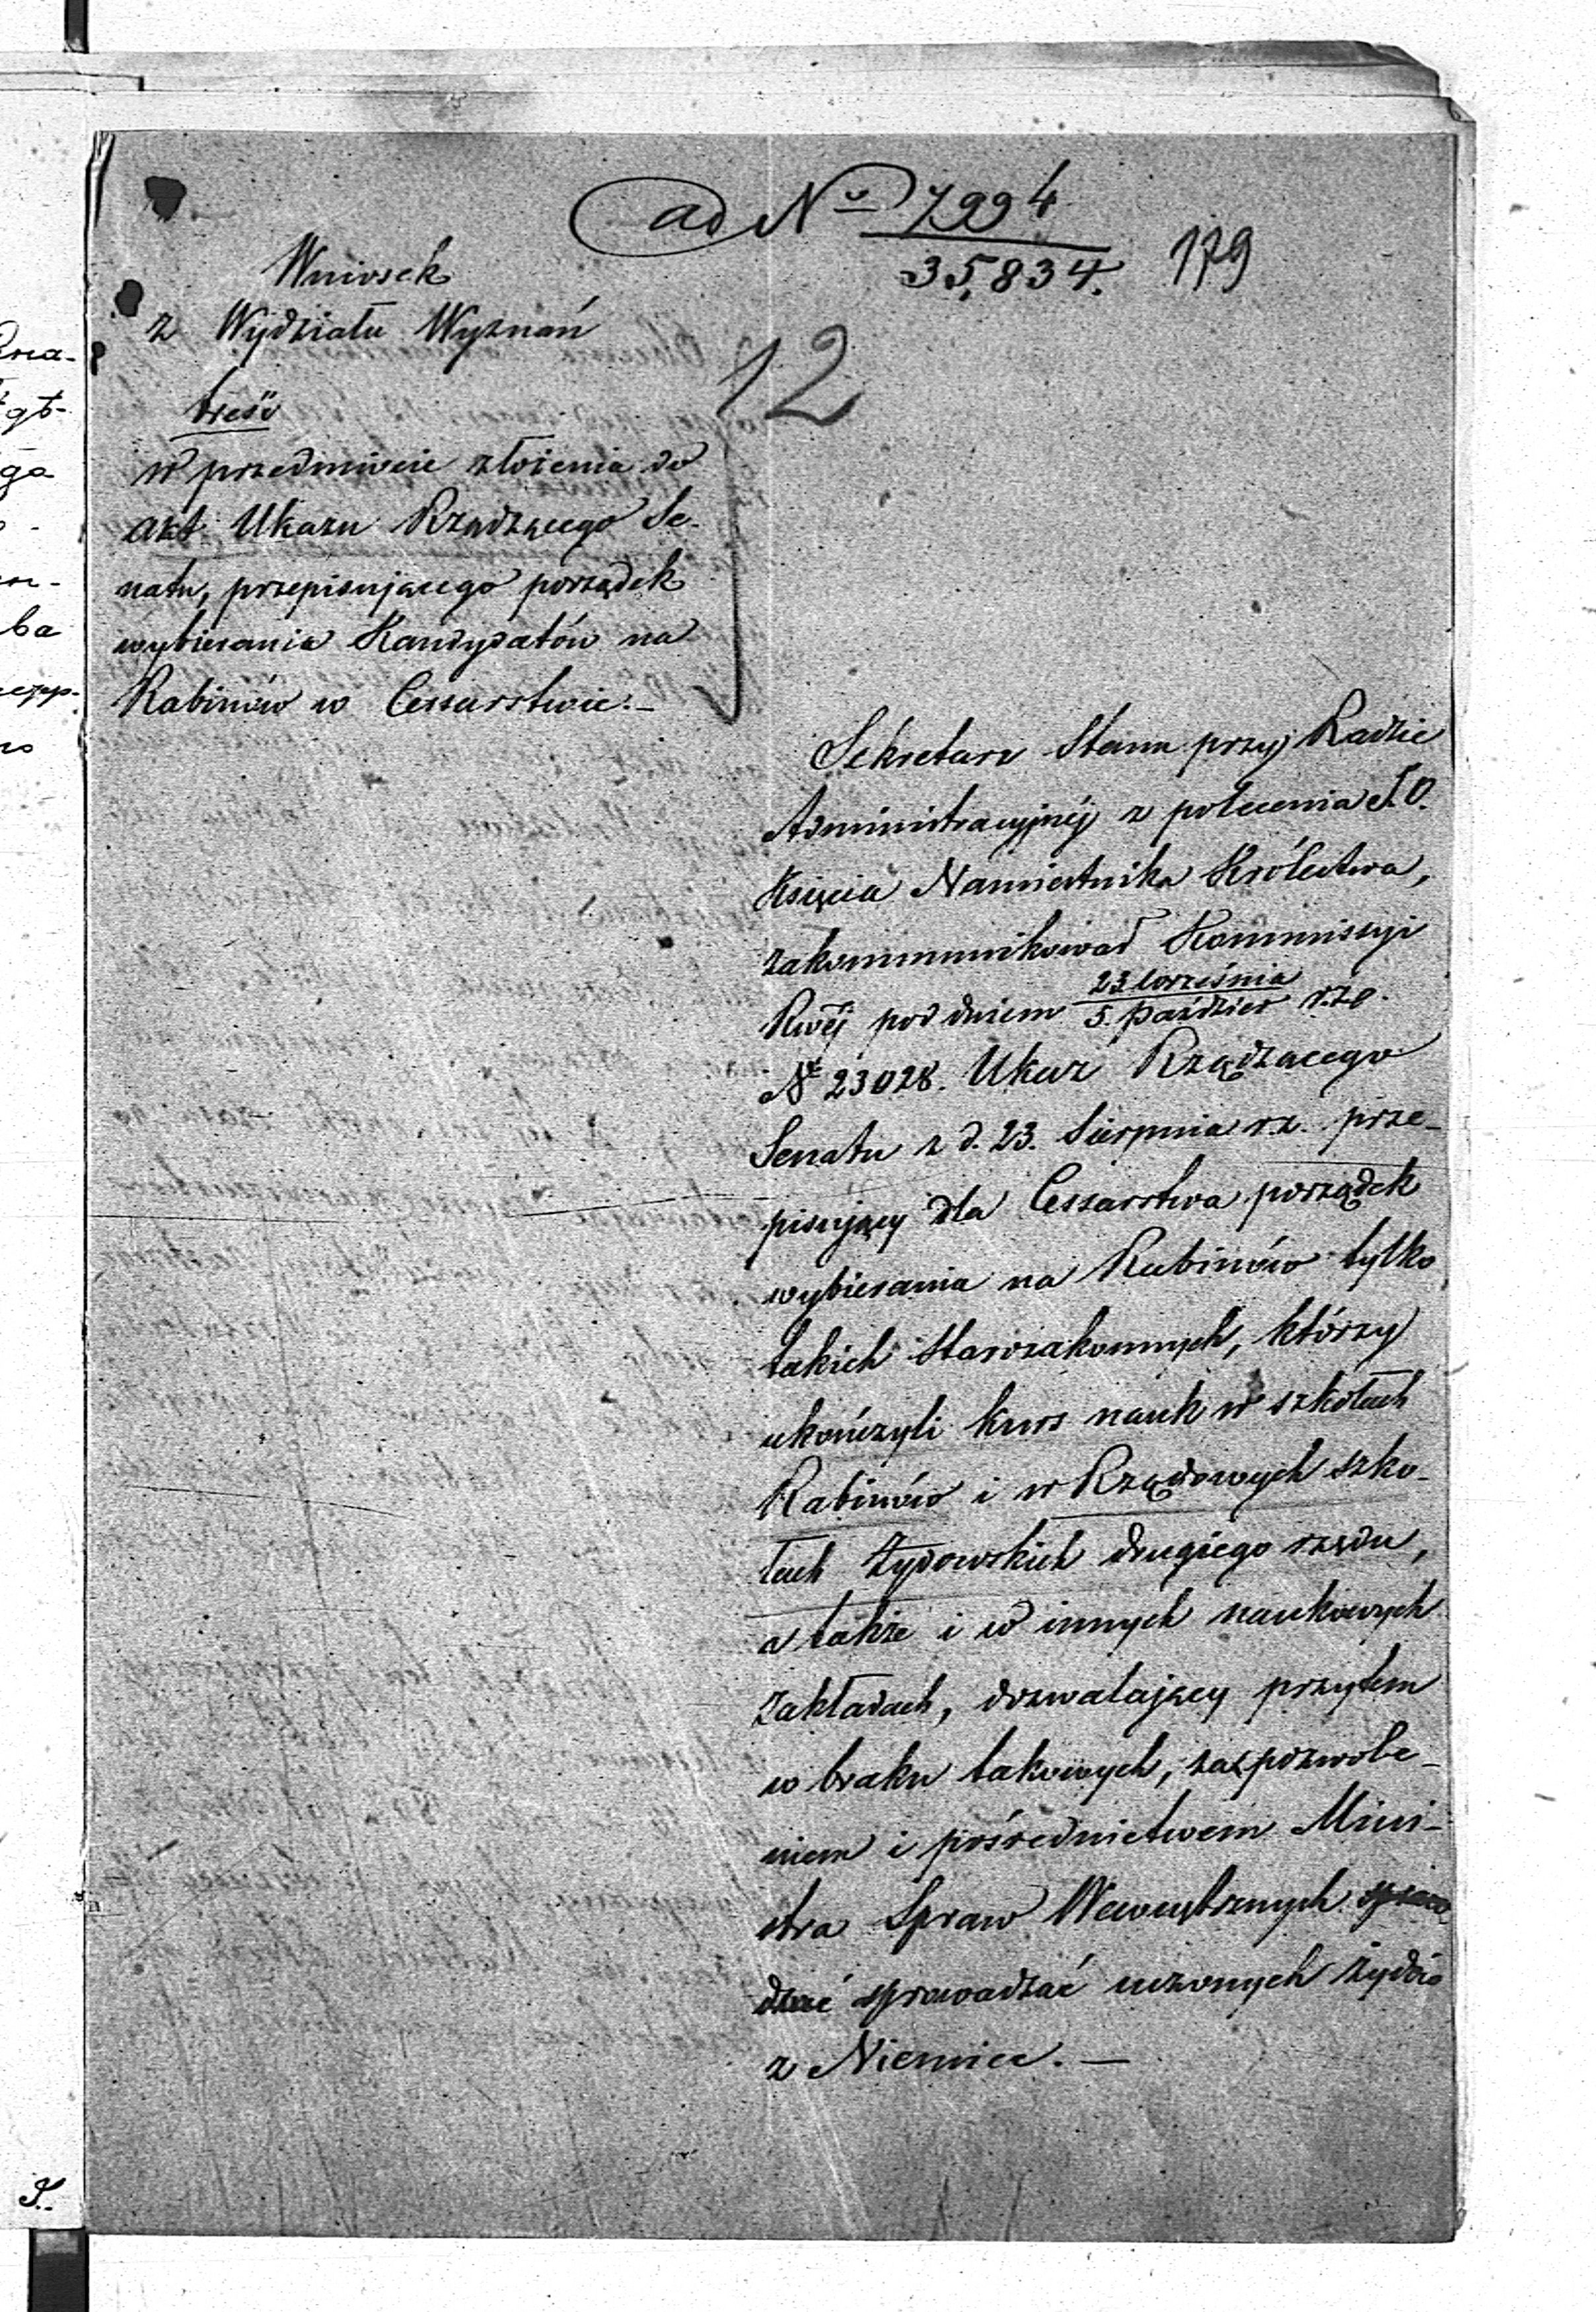 ad No 7994
35,834.
179
12
Wniosek
z Wydziału Wyznań
treść
w przedmiocie złożenia do
akt Ukazu Rządzącego Se-
natu, przepisującego porządek
wybierania Kandydatów na
Rabinów w Cessarstwie.-
Sekretarz Stanu przy Radzie
Administracyjnéj z polecenia J.O.
Księcia Namiestnika Królestwa,
zakommunikował Kommissyi
Rwéj pod dniem 23 Września
5. Paździer r.z.
No 23028. Ukaz Rządzącego
Senatu z d. 23. Sierpnia r.z. prze-
pisujący dla Cessarstwa porządek
wybierania na Rabinów tylko
takich Starozakonnych, którzy
ukończyli kurs nauk w szkołach
Rabinów i w Rządowych szko-
łach Żydowskich drugiego rzędu,
a także i w innych naukowych
zakładach, dozwalający przytem
w braku takowych, za pozwole-
niem i pośrednictwem Mini-
stra Spraw Wewnętrznych
sprowadzać uczonych żydów
z Niemiec. —